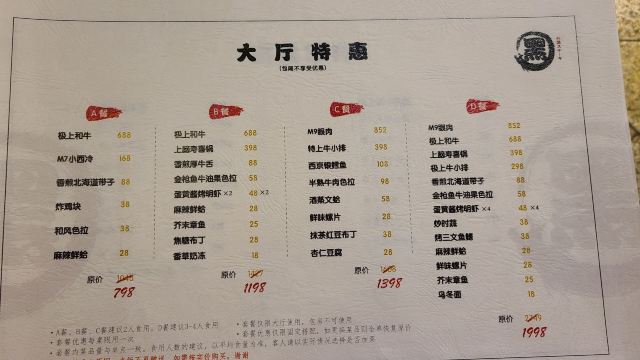 大厅特惠
(包厢不享受优惠)
黑
A餐
极上和牛 688
M7小西冷 168
香煎北海道带子 88
炸鸡块 38
和风色拉 38
麻辣鲜蛤 28
原价 1048
798
B餐
极上和牛 688
上脑寿喜锅 398
香煎厚牛舌 88
金枪鱼牛油果色拉 58
蛋黄酱烤明虾×2 48×2
麻辣鲜蛤 28
芥末章鱼 25
焦糖布丁 28
香草奶冻 18
原价
1198
C餐
M9眼肉 852
特上牛小排 398
西京银鳕鱼 108
半熟牛肉色拉 98
酒蒸文蛤 58
鲜味螺片 28
抹茶红豆布丁 38
杏仁豆腐 28
原价 1608
1398
D餐
M9眼肉 852
极上和牛 688
上脑寿喜锅 398
极上牛小排 298
香煎北海道带子 88
金枪鱼牛油果色拉 58
蛋黄酱烤明虾×4 48×4
炒时蔬 38
烤三文鱼鳍 38
麻辣鲜蛤 28
鲜味螺片 28
芥末章鱼 25
乌冬面 18
原价 2749
1998
•A餐、B餐、C餐建议2人食用，D餐建议3-4人食用
•套餐仅限大厅使用，包房不可使用
•套餐优惠与拿现用一次
•套餐优惠仅限固定搭配，如更换菜品则全单恢复原价